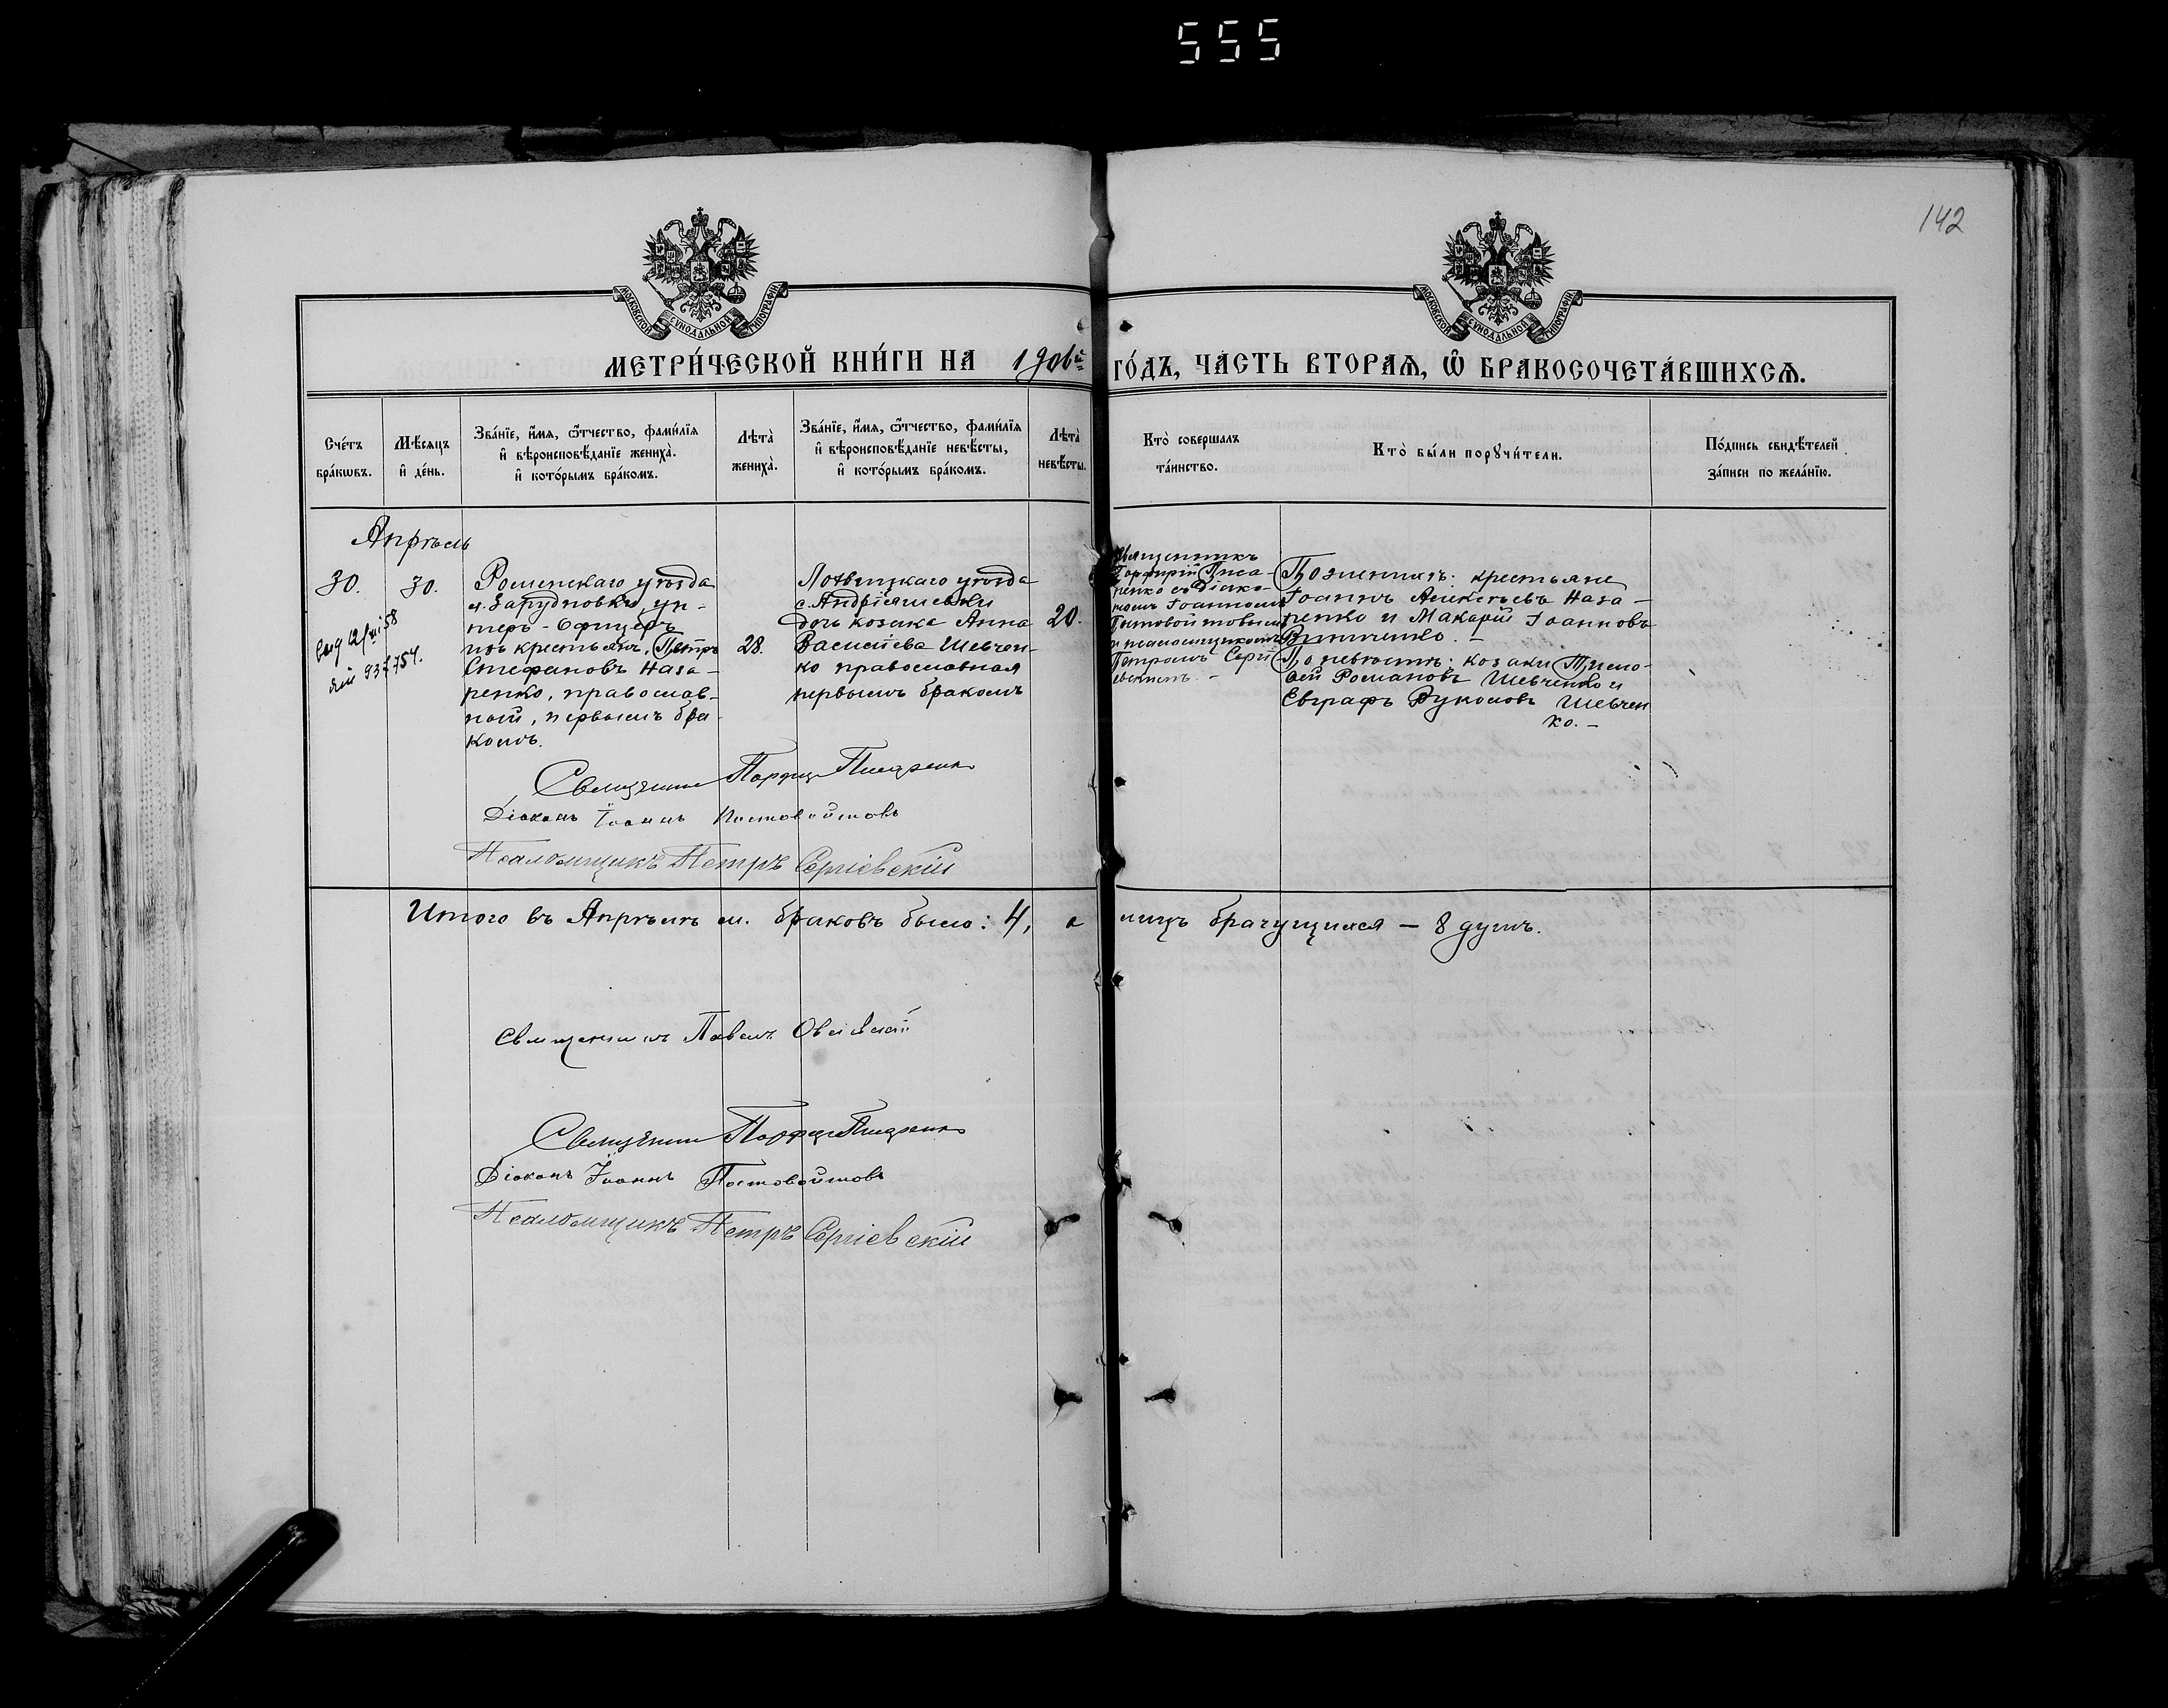 555
142
МОСКОВСКОЙ СѴНОДАЛЬНОЙ ТИПОГРАФІИ.
МОСКОВСКОЙ СѴНОДАЛЬНОЙ ТИПОГРАФІИ.
МЕТРИ́ЧЕСКОЙ КНИ́ГИ НА 1906й ГО́ДЪ, ЧА́СТЬ ВТОРАѦ, Ѡ҆ БРАКОСОЧЕТА́ВШИХСѦ.
Сче́тъ бра́кѡвъ.
Мѣ́сяцъ и҆ де́нь.
Зва́нїе, и҆́мя, ѻ҆́тчество, фами́лїя и҆ вѣроисповѣ́данїе жениха̀. и҆ кото́рымъ бра́комъ.
Лѣта̀ жениха̀.
Зва́нїе, и҆́мя, ѻ҆́тчество, фами́лїя и҆ вѣроисповѣ́данїе невѣ́сты, и҆ кото́рымъ бра́комъ.
Лѣта̀ невѣ́сты.
Кто̀ соверша́лъ та́инство.
Кто̀ бы́ли порꙋчи́тели.
По́дпись свидѣ́телей за́писи по жела́нїю.
Апрѣль
30.
30.
Роменскаго уѣзда
м. Зарудновки, ун-
теръ-офицеръ
изъ крестьянъ, Петръ
Стефановъ Наза-
ренко, православ-
ной, первымъ бра-
комъ.
28.
Лохвицкаго уѣзда
с. Андріяшевки
дочь козака Анна
Василіева Шевчен-
ко православная
первымъ бракомъ
20.
Священникъ
Порфирій Писа-
ренко съ Діако-
номъ Іоанномъ
Постовойтовымъ
и псаломщикомъ
Петромъ Сергі-
евскимъ. -
По женихѣ: крестьяне
Іоаннъ Алексѣевъ Наза-
ренко и Макарій Іоанновъ
Винниченко. -
По невѣстѣ: козаки Тимо-
фей Романовъ Шевченко и
Евграфъ Лукыновъ Шевчен
ко. -
937754.
Священникъ Порфир Писаренко
Діаконъ Іоаннъ Постовойтовъ
Псаломщикъ Петръ Сергіевскій
Итого въ Апрѣлѣ м. браковъ было: 4, а лицъ брачущихся - 8 душъ.
Священникъ Павелъ
Священникъ Порфир Писаренко
Діаконъ Іоаннъ Постовойтовъ
Псаломщикъ Петръ Сергіевскій